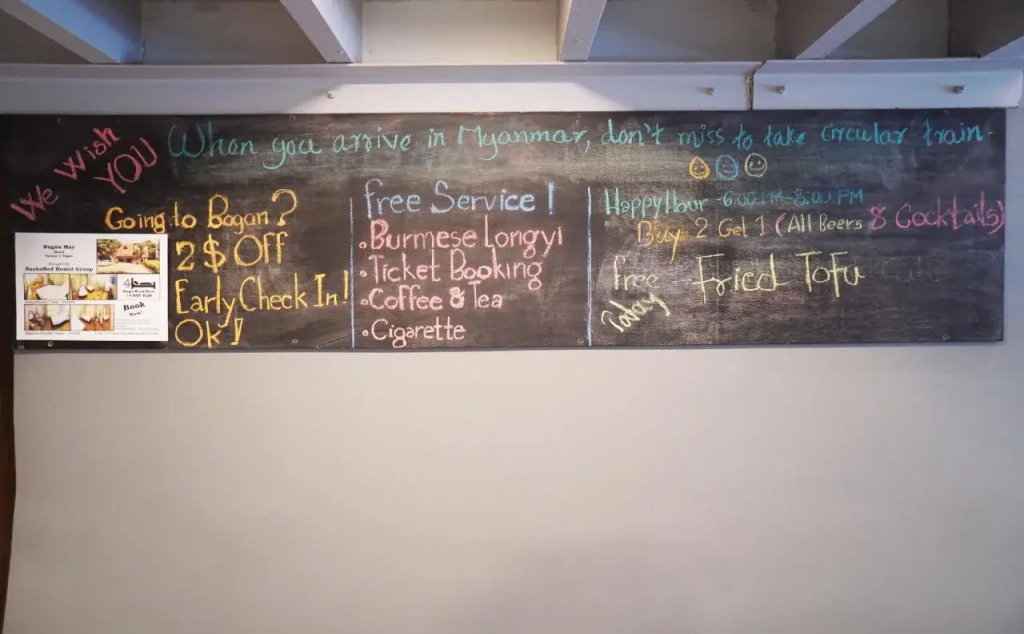 We Wish YOU
When you arrive in Myanmar, don't miss to take circular train.
Going to Bagan?
2$ Off
Early Check In!
Ok!
Bagan May
BaobaBed Hostel Group
Book
Now!
free Service!
.Burmese Longyi
.Ticket Booking
.Coffee & Tea
.Cigarette
Happy Hour 6:00 PM-8:00 PM
Buy 2 Get 1 (All Beers & Cocktails)
free Fried Tofu
Today